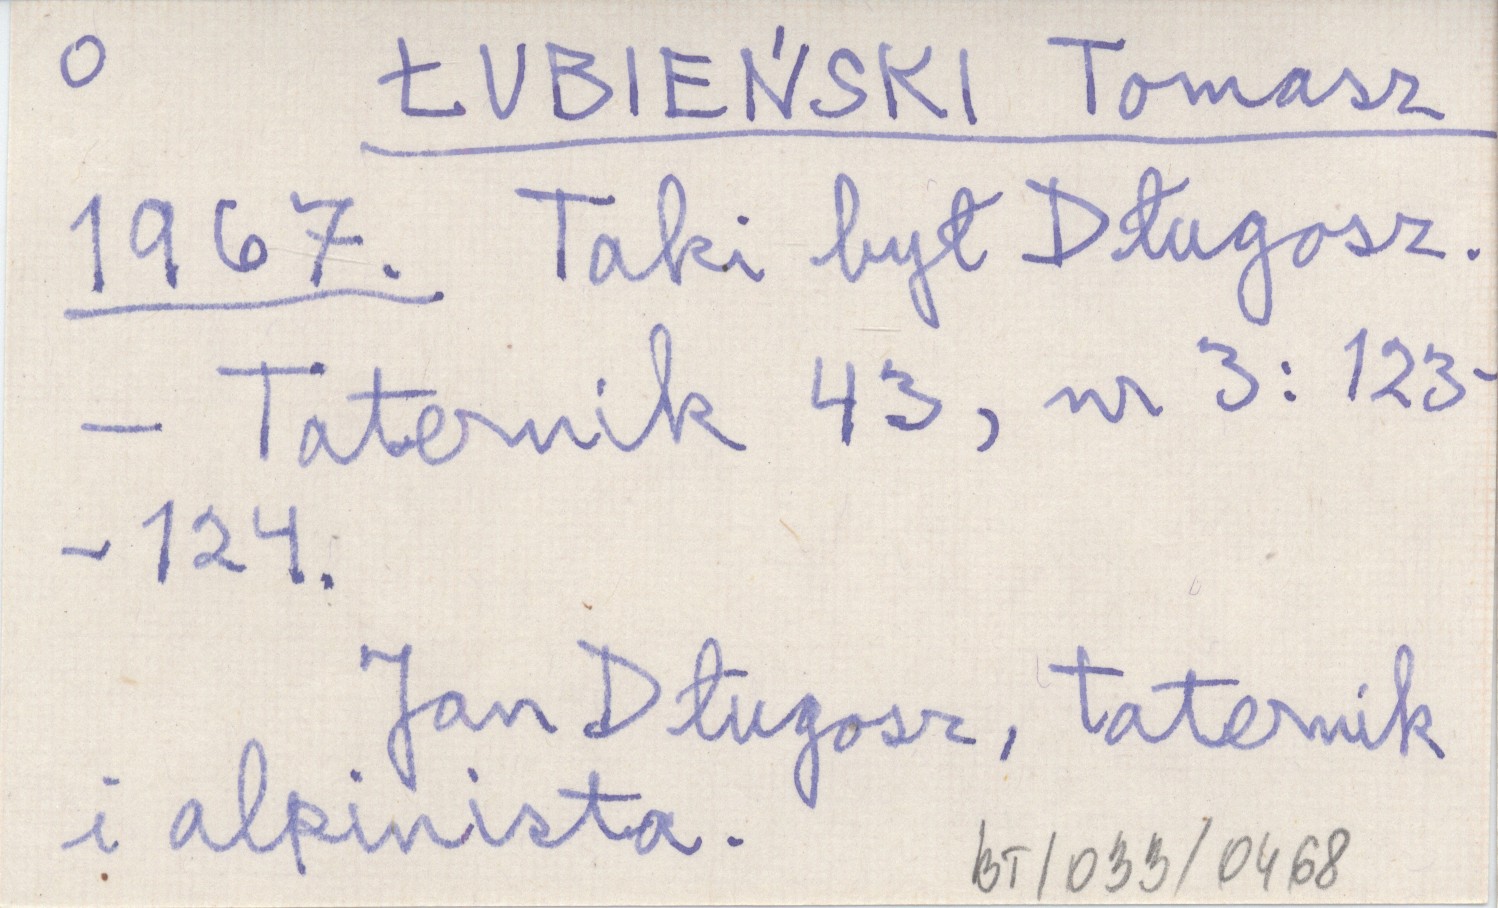 O ŁUBIEŃSKI Tomasz
1967. Taki był Długosz.
– Taternik 43, nr 3: 123-
-124.
Jan Długosz, taternik
i alpinista.
BT/033/0468